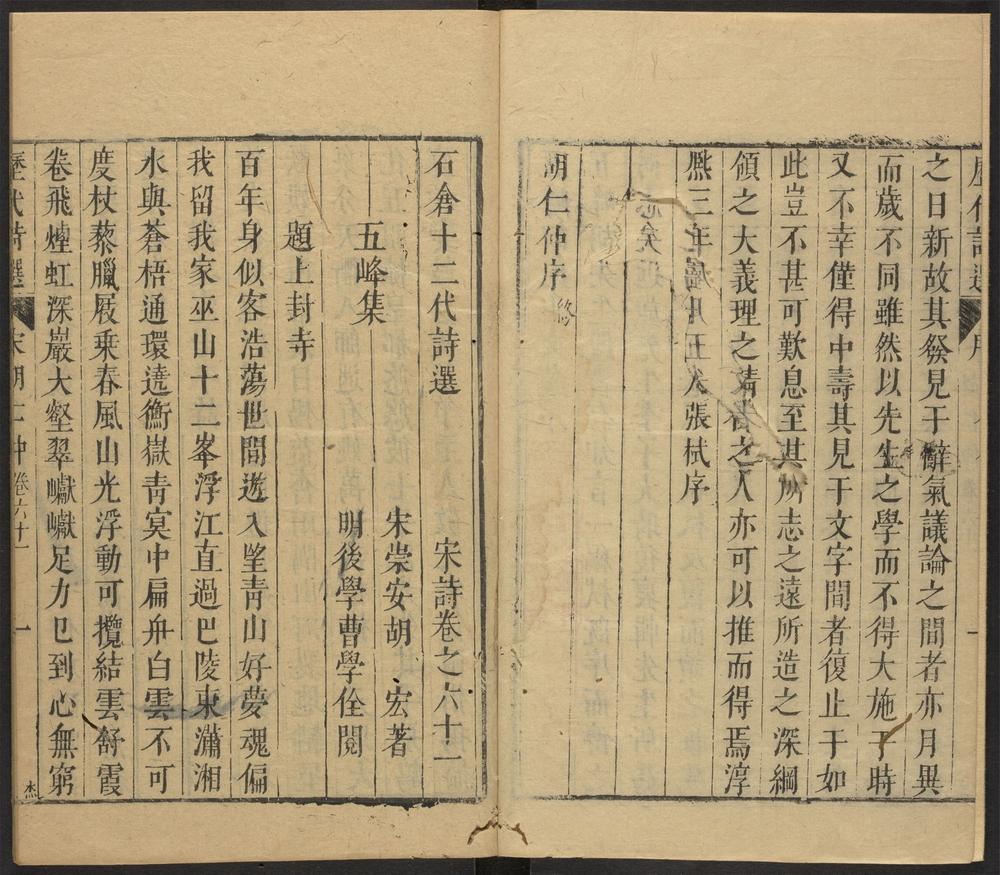 之日新故其發見于辭氣議論之間者亦月異
而歲不同雖然以先生之學而不得大施于時
又不幸僅得中壽其見于文字間者復止于如
此豈不甚可歎息至其所志之遠所造之深綱
領之大義理之精者之人亦可以推而得焉淳
熙三年 張栻序
胡仁仲序
石倉十二代詩選 宋詩卷之六十一
宋崇安胡 宏著
五峰集 明後學曹學佺閱
題上封寺
百年身似客浩蕩世間遊入望青山好夢魂偏
我留我家巫山十二峯浮江直過巴陵東瀟湘
水與蒼梧通環遶衡嶽青冥中扁舟白雲不可
度杖藜臘屐乗春風山光浮動可攬結雲舒霞
卷飛煙虹深巖大壑翠巘巘足力已到心無窮
歷代詩選 宋胡仁仲卷六十一 一
杰